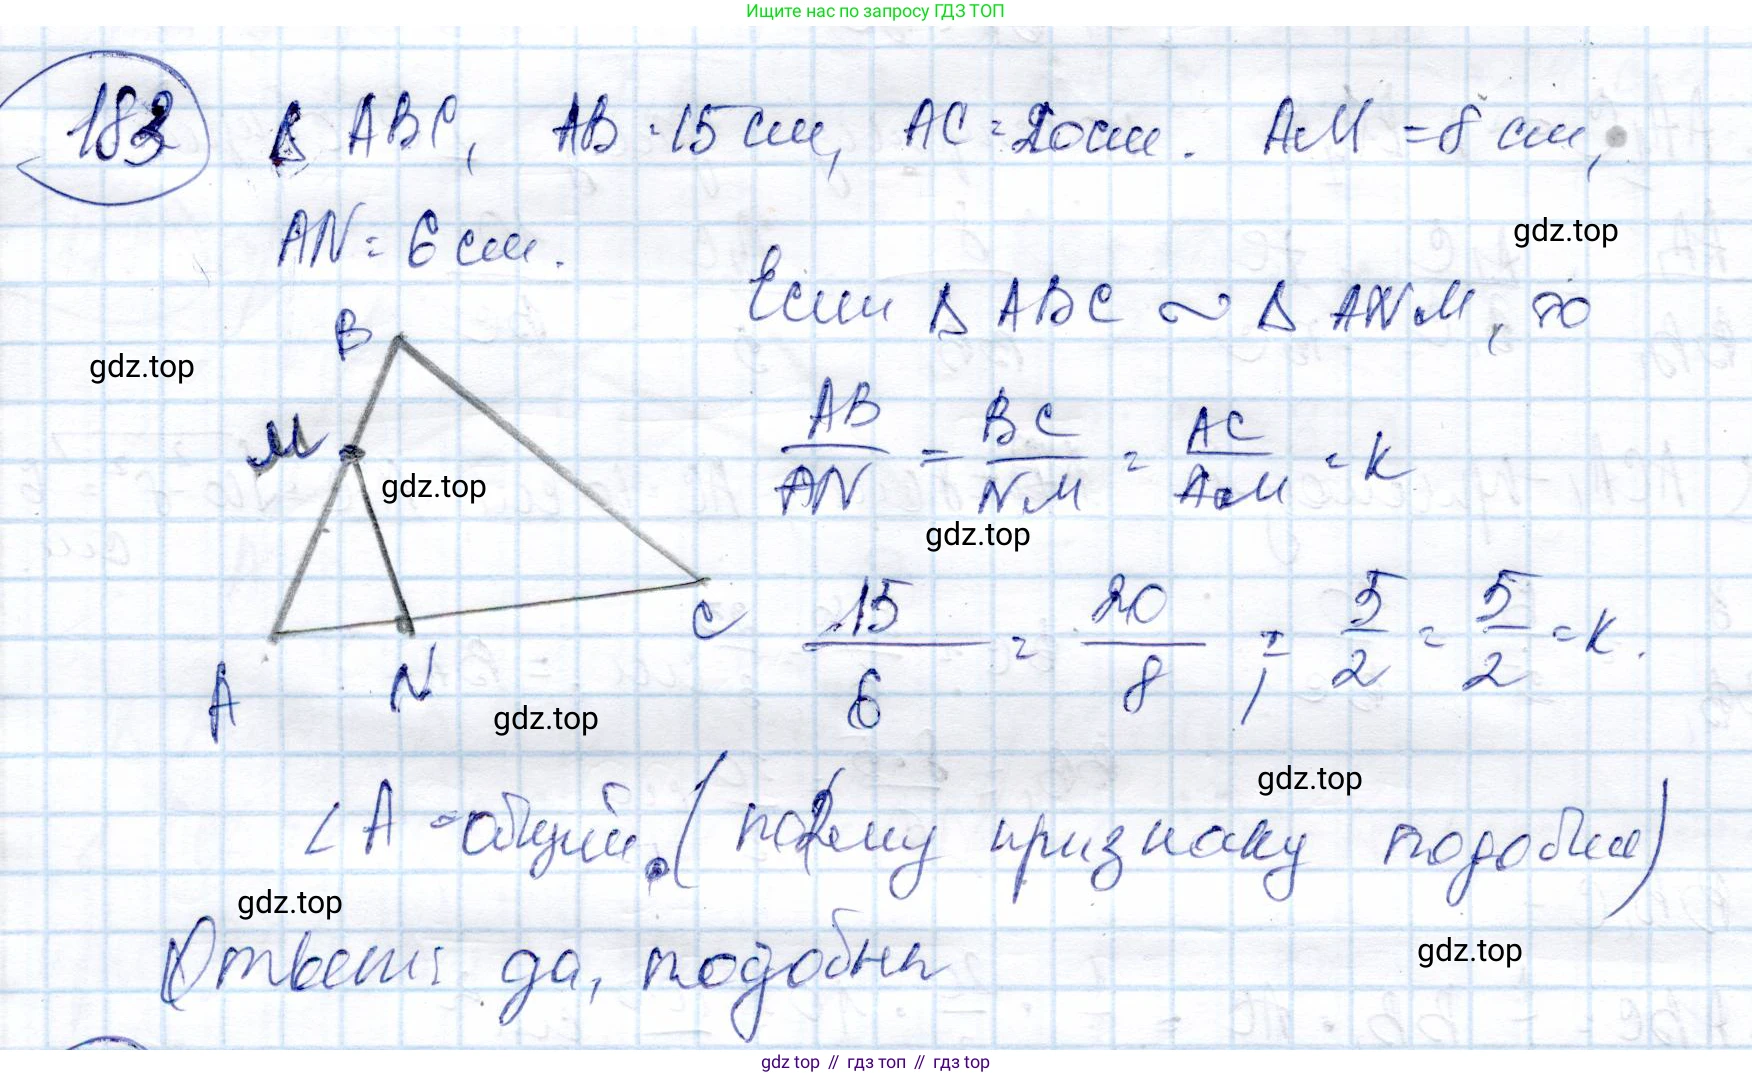 Ищите нас по запросу ГДЗ ТОП
183 Δ ABC, AB = 15 см, AC = 20 см. AM = 8 см,
gdz.top
AN = 6 см.
Если Δ ABC ~ Δ ANM, то
B
gdz.top
AB/AN = BC/NM = AC/AM = k
M
gdz.top
gdz.top
15/6 = 20/8 ; 5/2 = 5/2 = k.
C
A N
gdz.top
gdz.top
∠A - общий. (по 2му признаку подобия)
gdz.top
Ответ: да, подобны
gdz.top
gdz top // гдз топ // gdz top